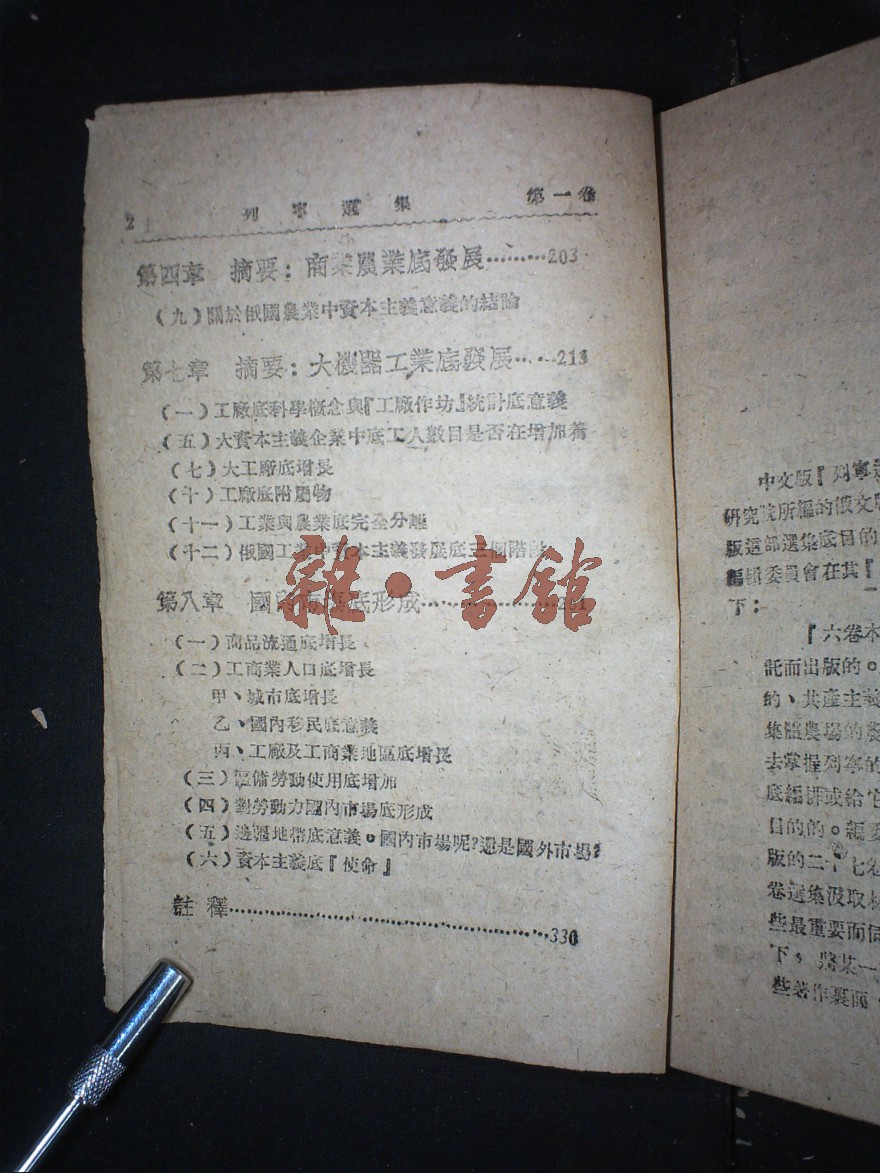 2 列寧選集 第一卷
第四章 摘要：商業農業底發展………203
（九）關於俄國農業中資本主義意義的結論
第七章 摘要：大機器工業底發展……213
（一）工廠底科學概念與『工廠作坊』統計底意義
（五）大資本主義企業中底工人數目是否在增加着
（七）大工廠底增長
（十）工廠底附屬物
（十一）工業與農業底完全分離
（十二）俄國工業中資本主義發展底三個階段
第八章 國內市場底形成
（一）商品流通底增長
（二）工商業人口底增長
甲、城市底增長
乙、國內移民底意義
丙、工廠及工商業地區底增長
（三）僱傭勞動使用底增加
（四）對勞動力國內市場底形成
（五）邊疆地帶底意義。國內市場呢？還是國外市場？
（六）資本主義底『使命』
註釋……330
雜·書館
中文版『列寧選
研究院所編的俄文版
版這部選集底目的
編輯委員會在其『
下：
『六卷本
託而出版的。
的、共產主義
集體農場的農
去掌握列寧的
底編排或給它
目的的。編委
版的二十七卷
卷選集汲取材
些最重要而
下，將某一
些著作裏面